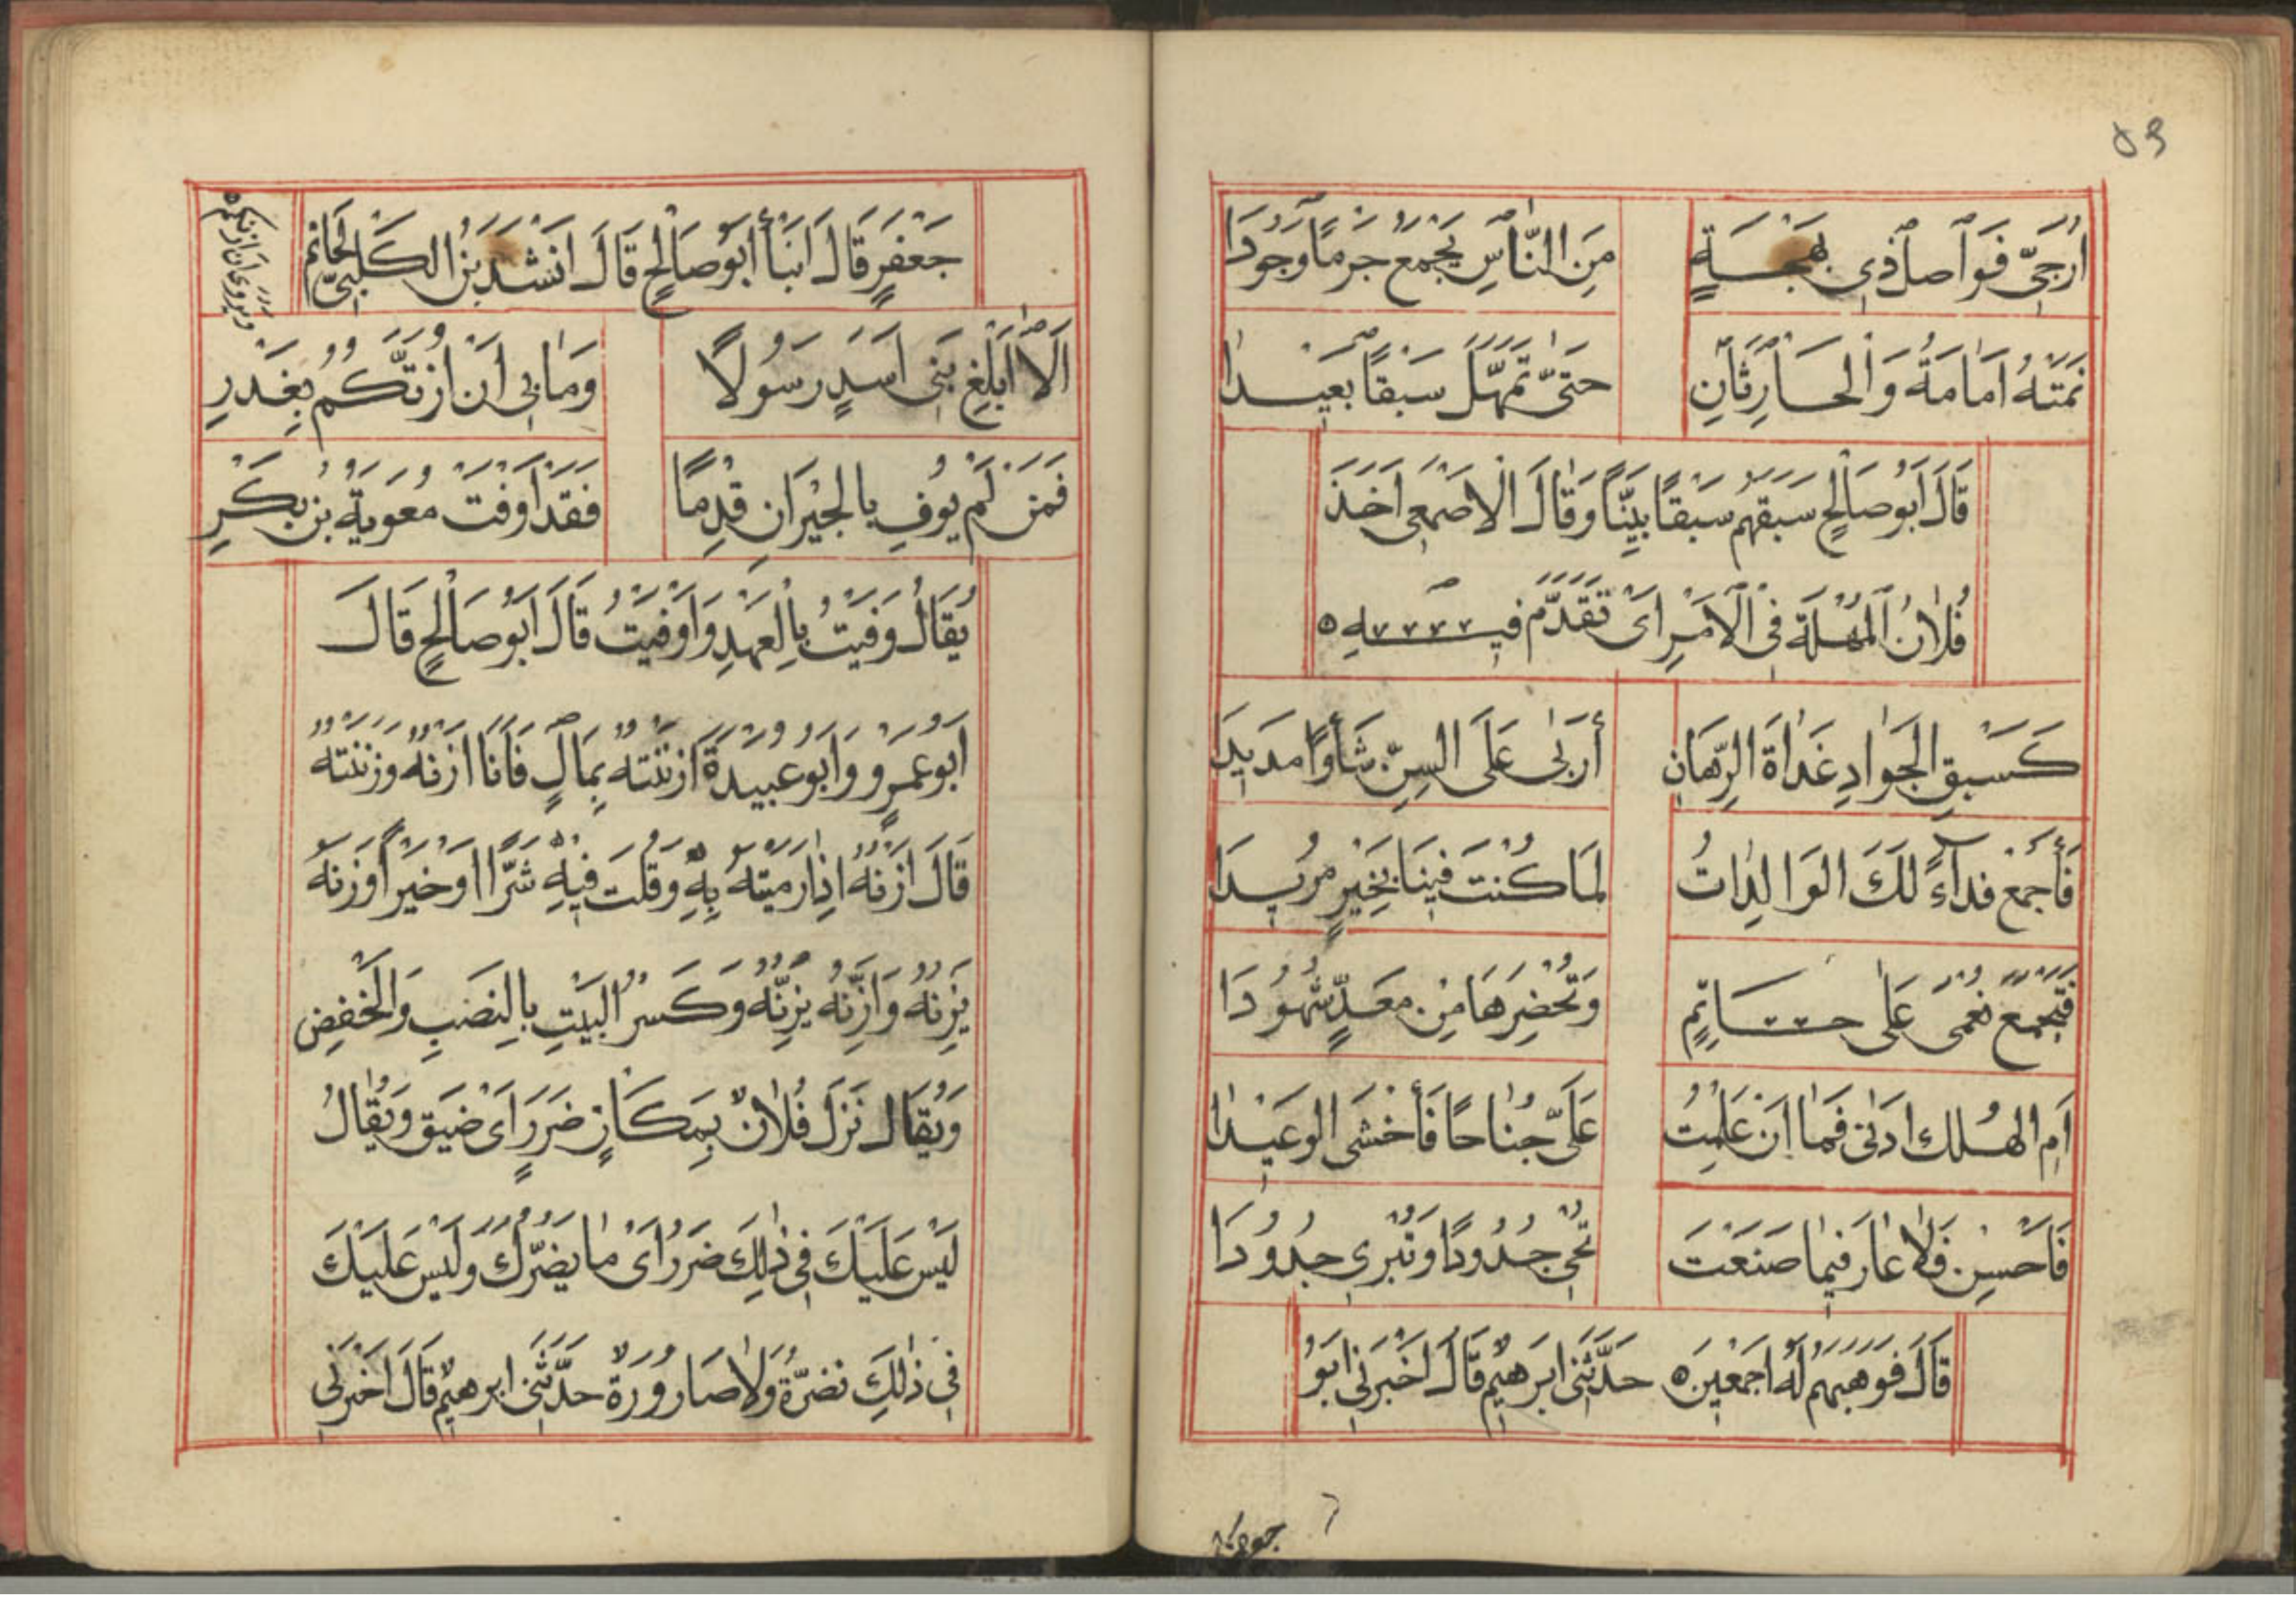 ٥٩
أُرَجِّي فَوَاصِلَ ذِي بَهْجَةٍ مِنَ النَّاسِ يَجْمَعُ حَزْمًا وَجُودَا
نَمَتْهُ أُمَامَةُ وَالْحَارِثَانِ حَتَّى تَمَهَّلَ سَبْقًا بَعِيدَا
قَالَ أَبُو صَالِحٍ سَبَقَهُمْ سَبْقًا بَيِّنًا وَقَالَ الْأَصْمَعِي أَخَذَ
فُلَانُ الْمُهْلَةَ فِي الْأَمْرِ أَيْ تَقَدَّمَ فِيهِ ٥
كَسَبْقِ الْجَوَادِ غَدَاةَ الرِّهَانِ أَرْبَى عَلَى السِّنِّ شَأْوًا مَدِيدَا
فَأَجْمَعْ فِدَآءً لَكَ الْوَالِدَاتُ لِمَا كُنْتَ فِينَا بِخَيْرٍ مُرِيدَا
فَتَجْمَعُ نُعْمَى عَلَى حَاتِمٍ وَتُحْضِرَهَا مِنْ مَعَدٍّ شُهُودَا
أَمِ الْهُلْكَ أَدْنَى فَمَا إِنْ عَلِمْتُ عَلَيَّ جُنَاحًا فَأَخْشَى الْوَعِيدَا
فَأَحْسِنْ فَلَا عَارَ فِيمَا صَنَعْتَ تُحْيِ جُدُودًا وَتُبْرِي جُدُودَا
قَالَ فَوَهَبَهُمْ لَهُ أَجْمَعِينَ ٥ حَدَّثَنِي إِبْرَهِيمُ قَالَ أَخْبَرَنِي أَبُو
جَعْفَرٍ قَالَ أَنْبَأَ أَبُو صَالِحٍ قَالَ أَنْشَدَ بْنُ الْكَلْبِيِّ لِحَاتِمٍ
وَيُرْوَى أَنْ أَزَنَّكُمْ ٥
أَلَا أَبْلِغْ بَنِي أَسَدٍ رَسُولًا وَمَا بِي أَنْ أَزُنَّكُمُ بِغَدْرِ
فَمَنْ لَمْ يُوفِ بِالْجِيرَانِ قِدْمًا فَقَدْ أَوْفَتْ مُعَوِيَةُ بْنُ بَكْرِ
يُقَالُ وَفَيْتُ بِالْعَهْدِ وَأَوْفَيْتُ قَالَ أَبُو صَالِحٍ قَالَ
أَبُو عَمْرٍو وَأَبُو عُبَيْدَةَ أَزْنَنْتُهُ بِمَالٍ فَأَنَا أُزِنُّهُ وَزَنَنْتُهُ
قَالَ أَزُنُّهُ إِذَا رَمَيْتَهُ بِهِ وَقُلْتَ فِيهِ شَرًّا أَوْ خَيْرًا وَزَنَّهُ
يَزُنُّهُ وَأَزَنَّهُ يُزِنُّهُ وَكَسْرُ الْبَيْتِ بِالنَّصْبِ وَالْخَفْضِ
وَيُقَالُ نَزَلَ فُلَانٌ بِمَكَانٍ ضَرَرٍ أَيْ ضَيِّقٍ وَيُقَالُ
لَيْسَ عَلَيْكَ فِي ذَلِكَ ضَرَرٌ أَيْ مَا يَضُرُّكَ وَلَيْسَ عَلَيْكَ
فِي ذَلِكَ تَضُرَّةٌ وَلَا صَارُورَةٌ حَدَّثَنِي إِبْرَهِيمُ قَالَ أَخْبَرَنِي